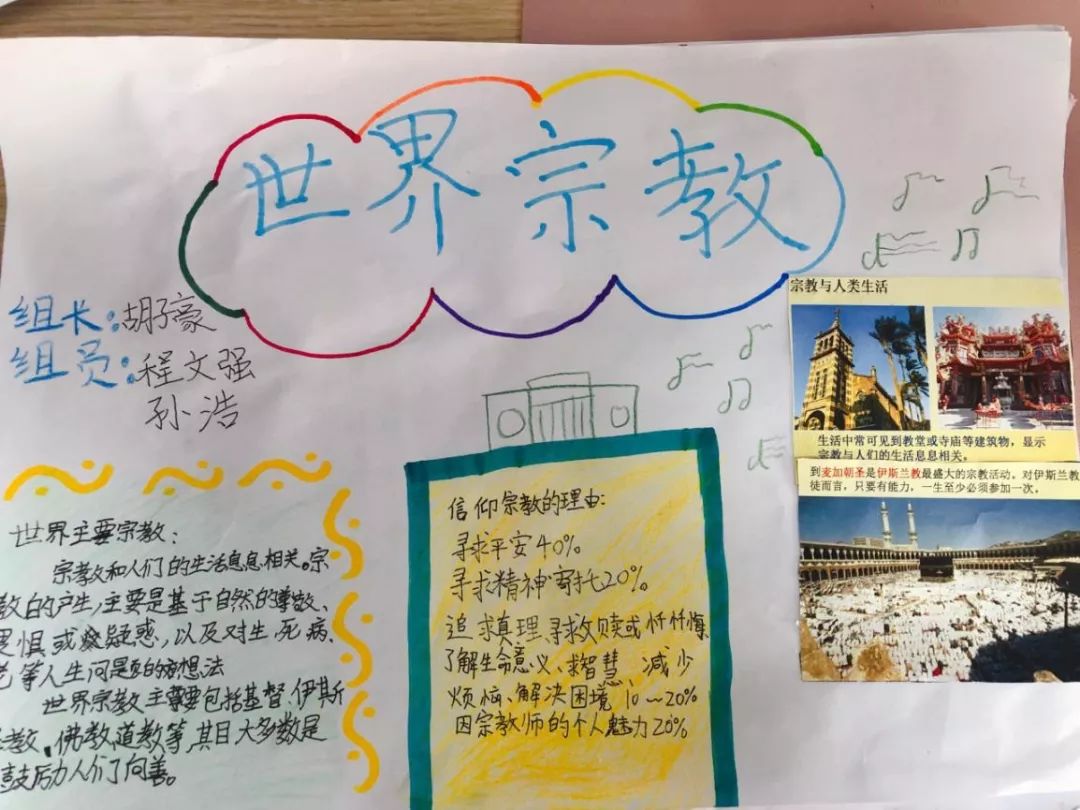 世界宗教
组长:胡子豪
组员:程文强
孙浩
世界主要宗教:
宗教和人们的生活息息相关。宗
教的产生,主要是基于自然的尊敬、
畏惧或疑惑,以及对生、死、病、
老等人生问题的想法
世界宗教主要包括基督、伊斯
教、佛教、道教等,其目大多数是
鼓励人们向善。
信仰宗教的理由:
寻求平安40%
寻求精神寄托20%
追求真理、寻求救赎或忏悔
了解生命意义、求智慧、减少
烦恼、解决困境 10~20%
因宗教师的个人魅力20%
宗教与人类生活
生活中常可见到教堂或寺庙等建筑物,显示
宗教与人们的生活息息相关。
到麦加朝圣是伊斯兰教最盛大的宗教活动。对伊斯兰教
徒而言,只要有能力,一生至少必须参加一次。